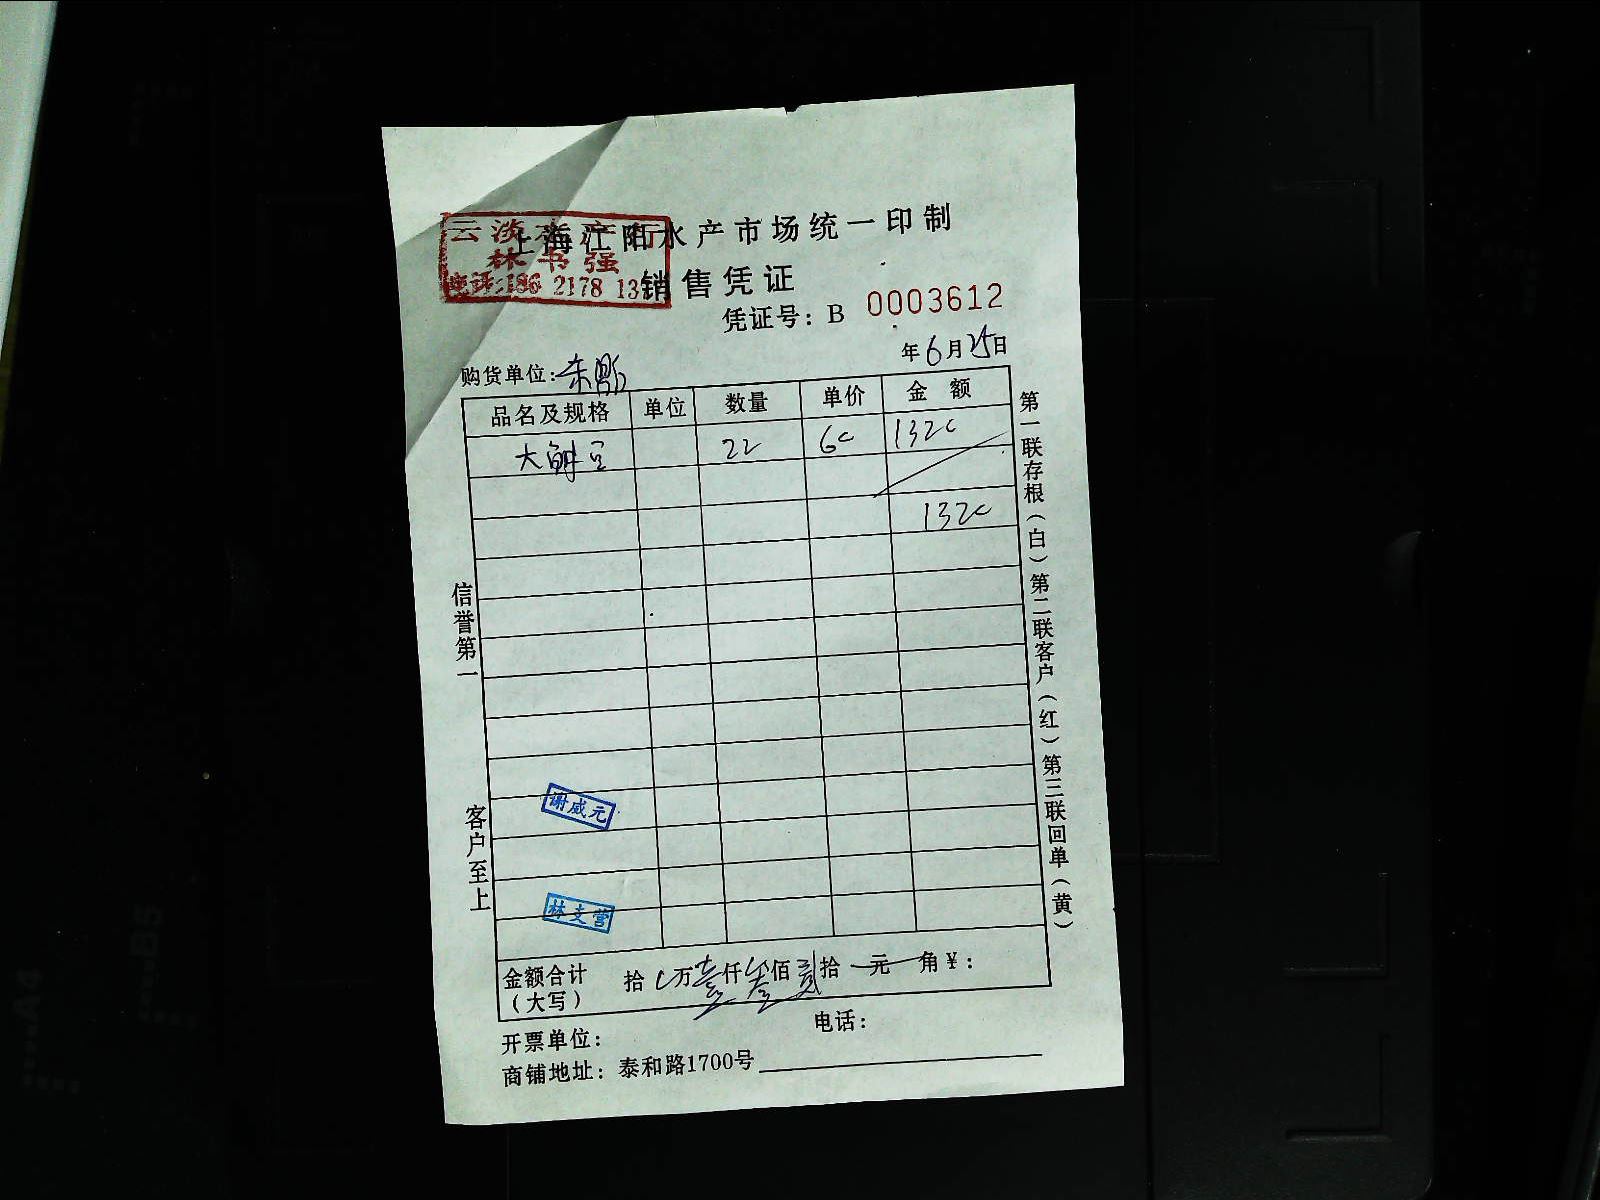 云 水产行
林书强
电话:186 2178 13
上海江阳水产市场统一印制
销售凭证
凭证号: B 0003612
年6月25日
购货单位:
品名及规格 单位 数量 单价 金额
大 22 60 1320
1320
信誉第一
客户至上
第一联存根(白)第二联客户(红)第三联回单(黄)
谢威元
林支营
金额合计 拾 万壹仟叁佰贰拾 元 角¥:
(大写)
开票单位: 电话:
商铺地址: 泰和路1700号